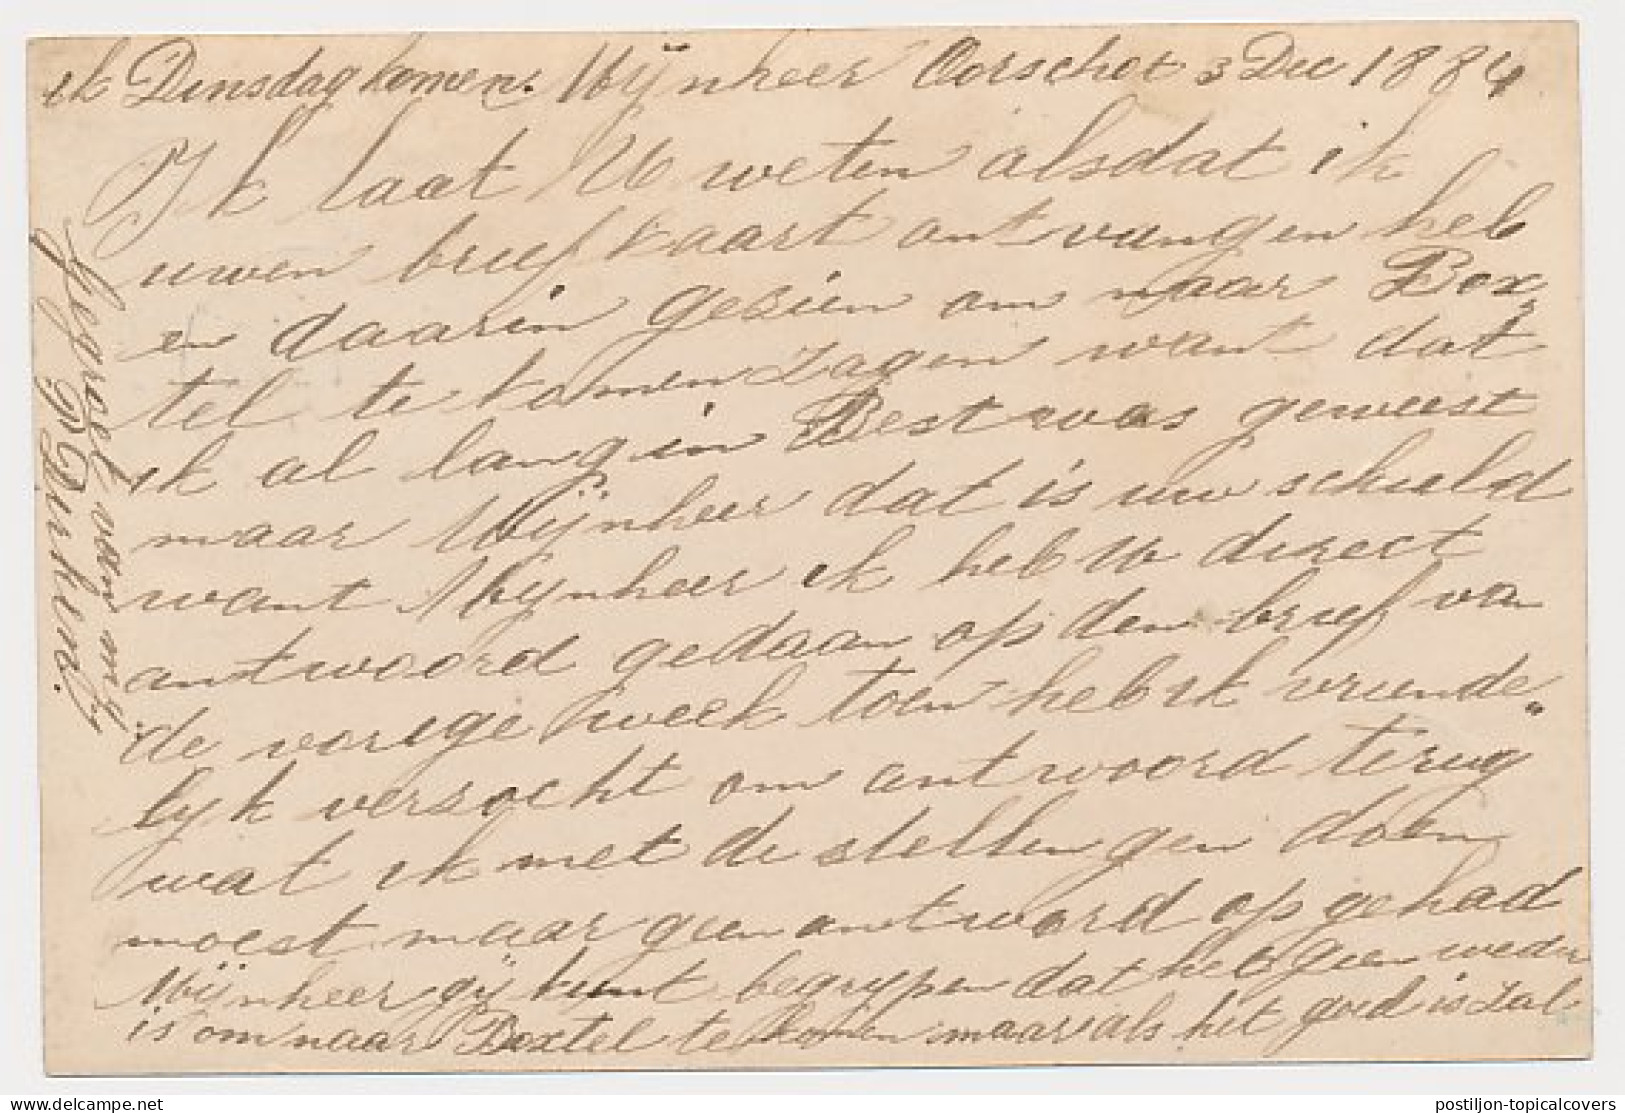 ik Dinsdag komen. Mijnheer Oorschot 3 Dec 1884
Ik laat U weten alsdat ik
uwen briefkaart ontvangen heb
en daarin gezien om naar Box,
tel te komen zagen want dat
ik al lang in Best was geweest
maar Mijnheer dat is uw schuld
want Mijnheer ik heb U direct
antwoord gedaan op den brief van
de vorige week toen heb ik vriende„
lijk versocht om antwoord terug
wat ik met de stellengen doen
moest maar geen antword op gehad
Mijnheer gij kunt begrypen dat het geen weder
is om naar Boxtel te komen maar als het goed is Zal
gegroet van mij